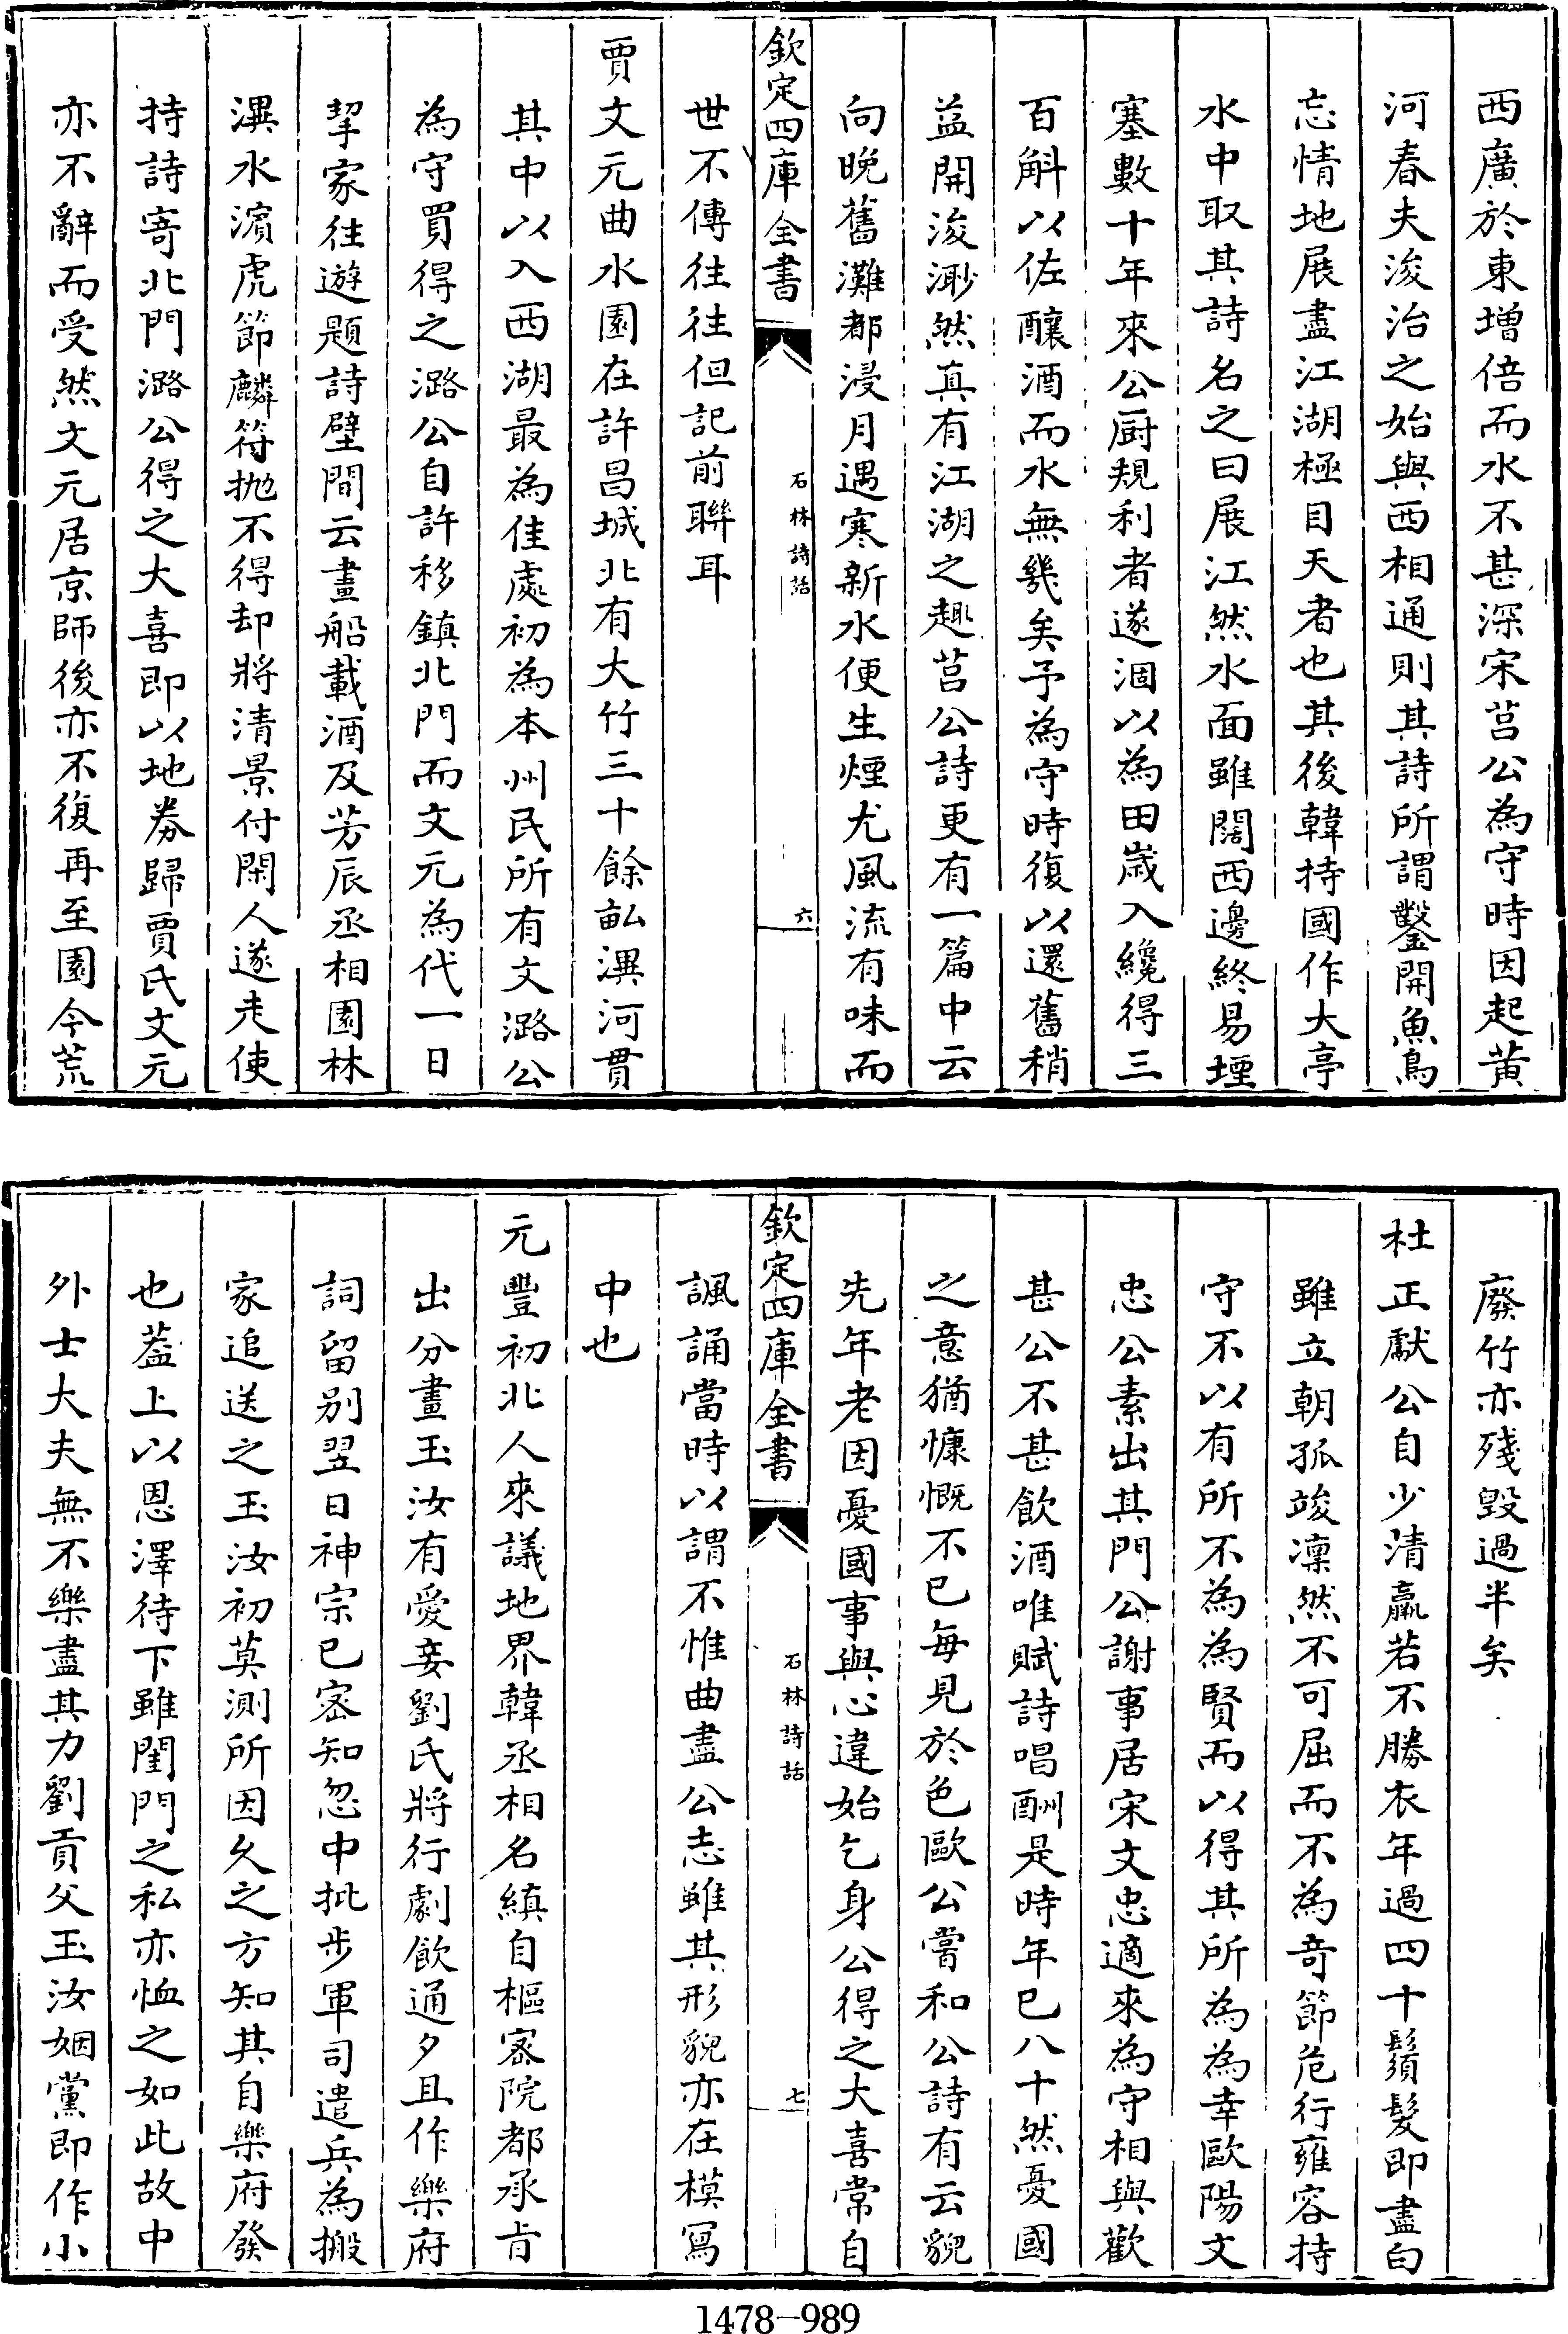 西廣於東增倍而水不甚深宋莒公為守時因起黃
河春夫浚治之始與西相通則其詩所謂鑿開魚鳥
忘情地展盡江湖極目天者也其後韓持國作大亭
水中取其詩名之曰展江然水面雖闊西邊終易堙
塞數十年來公厨規利者遂涸以為田歲入纔得三
百斛以佐釀酒而水無幾矣予為守時復以還舊稍
益開浚渺然真有江湖之趣莒公詩更有一篇中云
向晚舊灘都浸月遇寒新水便生煙尤風流有味而
欽定四庫全書
石林詩話
六
世不傳往往但記前聯耳
賈文元曲水園在許昌城北有大竹三十餘畝潩河貫
其中以入西湖最為佳處初為本州民所有文潞公
為守買得之潞公自許移鎮北門而文元為代一日
挈家往遊題詩壁間云畫船載酒及芳辰丞相園林
潩水濱虎節麟符抛不得却將清景付閑人遂走使
持詩寄北門潞公得之大喜即以地券歸賈氏文元
亦不辭而受然文元居京師後亦不復再至園今荒
廢竹亦殘毀過半矣
杜正獻公自少清羸若不勝衣年過四十鬚髮即盡白
雖立朝孤竣凜然不可屈而不為奇節危行雍容持
守不以有所不為為賢而以得其所為為幸歐陽文
忠公素出其門公謝事居宋文忠適來為守相與歡
甚公不甚飲酒唯賦詩唱酬是時年已八十然憂國
之意猶慷慨不已每見於色歐公嘗和公詩有云貌
先年老因憂國事與心違始乞身公得之大喜常自
欽定四庫全書
石林詩話
七
諷誦當時以謂不惟曲盡公志雖其形貌亦在模寫
中也
元豐初北人來議地界韓丞相名縝自樞宻院都承㫖
出分畫玉汝有愛妾劉氏將行劇飲通夕且作樂府
詞留别翌日神宗已宻知忽中批步軍司遣兵為搬
家追送之玉汝初莫測所因久之方知其自樂府發
也葢上以恩澤待下雖閨門之私亦恤之如此故中
外士大夫無不樂盡其力劉貢父玉汝姻黨即作小
1478-989